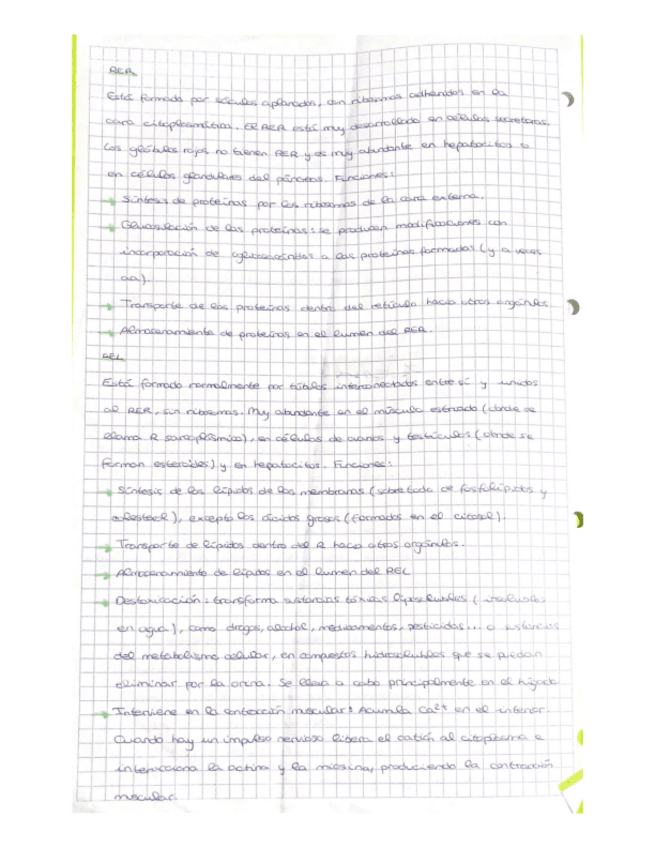 RER
Está formado por sáculos aplanados, con ribosomas adheridos en la
cara citoplasmática. El RER está muy desarrollado en células secretoras.
Los glóbulos rojos no tienen RER y es muy abundante en hepatocitos o
en células glandulares del páncreas. Funciones:
Síntesis de proteínas por los ribosomas de la cara externa.
Glucosilación de las proteínas: se producen modificaciones con
incorporación de a las proteínas formadas (y a veces
aa).
Transporte de las proteínas dentro del retículo hacia otros orgánulos
Almacenamiento de proteínas en el lumen del RER.
REL
Está formado normalmente por túbulos interconectados entre sí y unidos
al RER, sin ribosomas. Muy abundante en el músculo estriado (donde se
llama R sarcoplásmico), en células de ovarios y testículos (donde se
forman esteroides) y en hepatocitos. Funciones:
Síntesis de los lípidos de las membranas (sobretodo de fosfolípidos y
colesterol), excepto los ácidos grasos (formados en el citosol).
Transporte de lípidos dentro del R hacia otros orgánulos.
Almacenamiento de lípidos en el lumen del REL
Destoxicación: transforma sustancias tóxicas liposolubles (insolubles
en agua), como drogas, alcohol, medicamentos, pesticidas... o sustancias
del metabolismo celular, en compuestos hidrosolubles que se puedan
eliminar por la orina. Se lleva a cabo principalmente en el hígado
Interviene en la contracción muscular: Acumula Ca2+ en el interior.
Cuando hay un impulso nervioso libera el catión al citoplasma e
interacciona la actina y la miosina, produciendo la contracción
muscular.